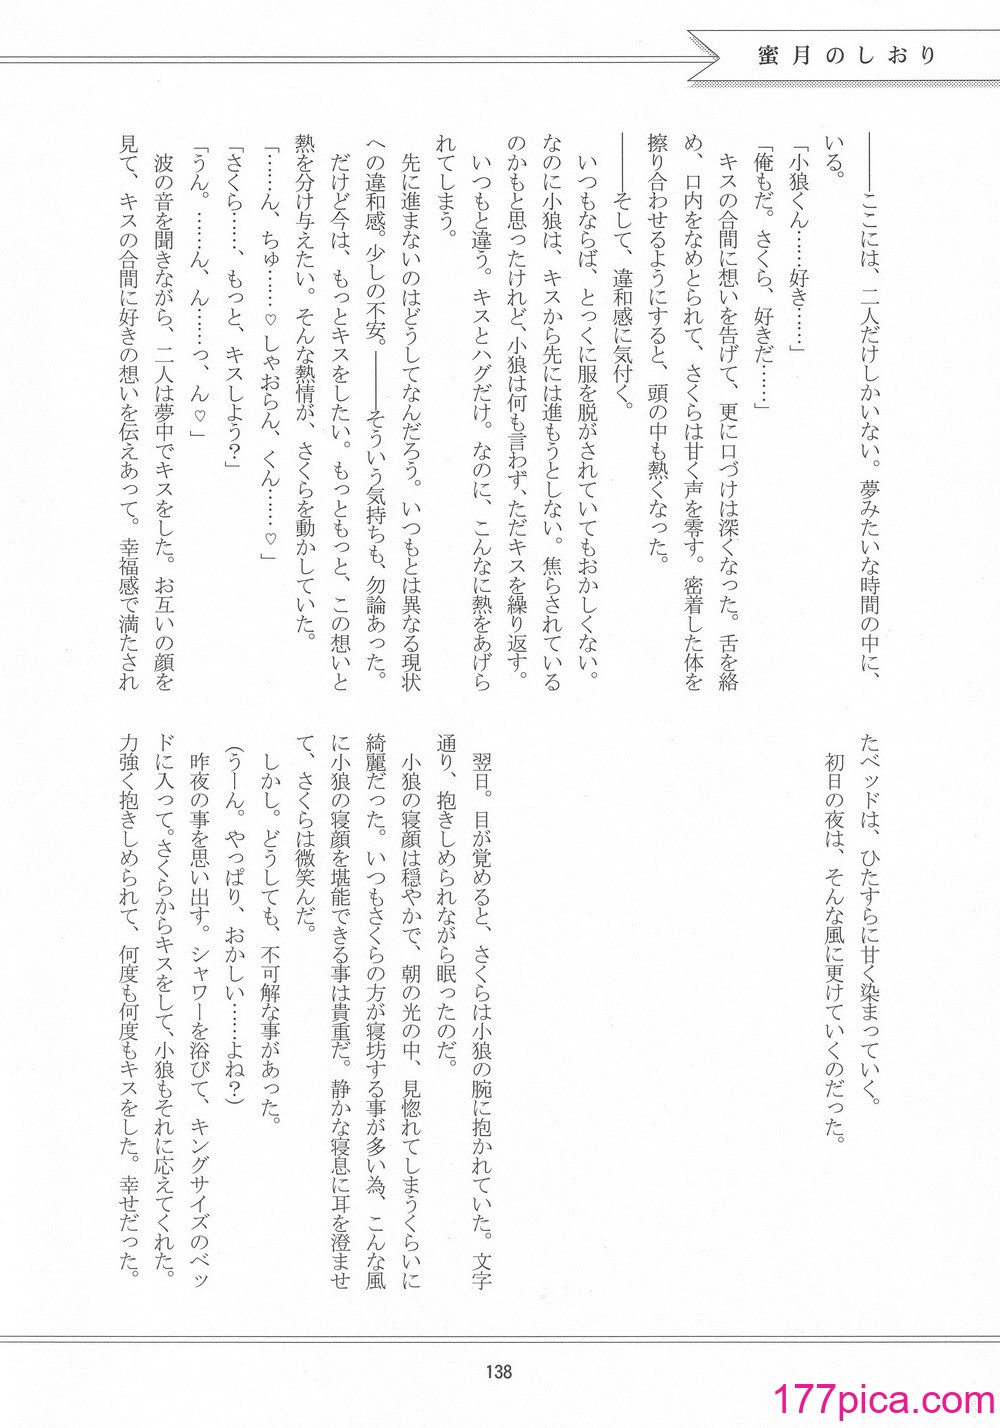 蜜月のしおり
――ここには、二人だけしかいない。夢みたいな時間の中に、
いる。
「小狼くん……好き……」
「俺もだ。さくら、好きだ……」
キスの合間に想いを告げて、更に口づけは深くなった。舌を絡
め、口内をなめとられて、さくらは甘く声を零す。密着した体を
擦り合わせるようにすると、頭の中も熱くなった。
――そして、違和感に気付く。
いつもならば、とっくに服を脱がされていてもおかしくない。
なのに小狼は、キスから先には進もうとしない。焦らされている
のかもと思ったけれど、小狼は何も言わず、ただキスを繰り返す。
いつもと違う。キスとハグだけ。なのに、こんなに熱をあげら
れてしまう。
先に進まないのはどうしてなんだろう。いつもとは異なる現状
への違和感。少しの不安。――そういう気持ちも、勿論あった。
だけど今は、もっとキスをしたい。もっともっと、この想いと
熱を分け与えたい。そんな熱情が、さくらを動かしていた。
「……ん、ちゅ……♡しゃおらん、くん……♡」
「さくら……、もっと、キスしよう？」
「うん。……ん、ん……っ、ん♡」
波の音を聞きながら、二人は夢中でキスをした。お互いの顔を
見て、キスの合間に好きの想いを伝えあって。幸福感で満たされ
たベッドは、ひたすらに甘く染まっていく。
初日の夜は、そんな風に更けていくのだった。
翌日。目が覚めると、さくらは小狼の腕に抱かれていた。文字
通り、抱きしめられながら眠ったのだ。
小狼の寝顔は穏やかで、朝の光の中、見惚れてしまうくらいに
綺麗だった。いつもさくらの方が寝坊する事が多い為、こんな風
に小狼の寝顔を堪能できる事は貴重だ。静かな寝息に耳を澄ませ
て、さくらは微笑んだ。
しかし。どうしても、不可解な事があった。
（うーん。やっぱり、おかしい……よね？）
昨夜の事を思い出す。シャワーを浴びて、キングサイズのベッ
ドに入って。さくらからキスをして、小狼もそれに応えてくれた。
力強く抱きしめられて、何度も何度もキスをした。幸せだった。
138
177pica.com